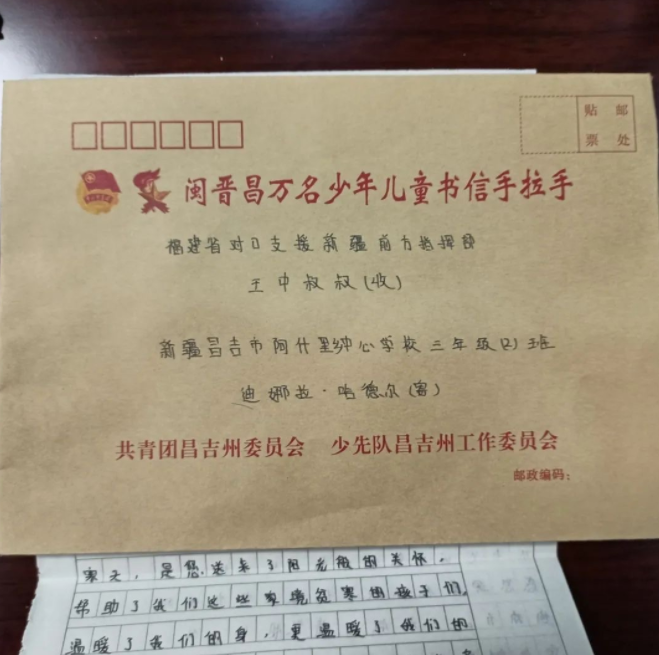 贴 邮
票 处
闽晋昌万名少年儿童书信手拉手
福建省对口支援新疆前方指挥部
王中叔叔(收)
新疆昌吉市阿什里乡中心学校三年级(2)班
迪娜拉·哈德尔(寄)
共青团昌吉州委员会 少先队昌吉州工作委员会
邮政编码：
寒天,是您送来了阳光般的关怀,
帮助了我们这些家境贫寒的孩子们,
温暖了我们的身,更温暖了我们的